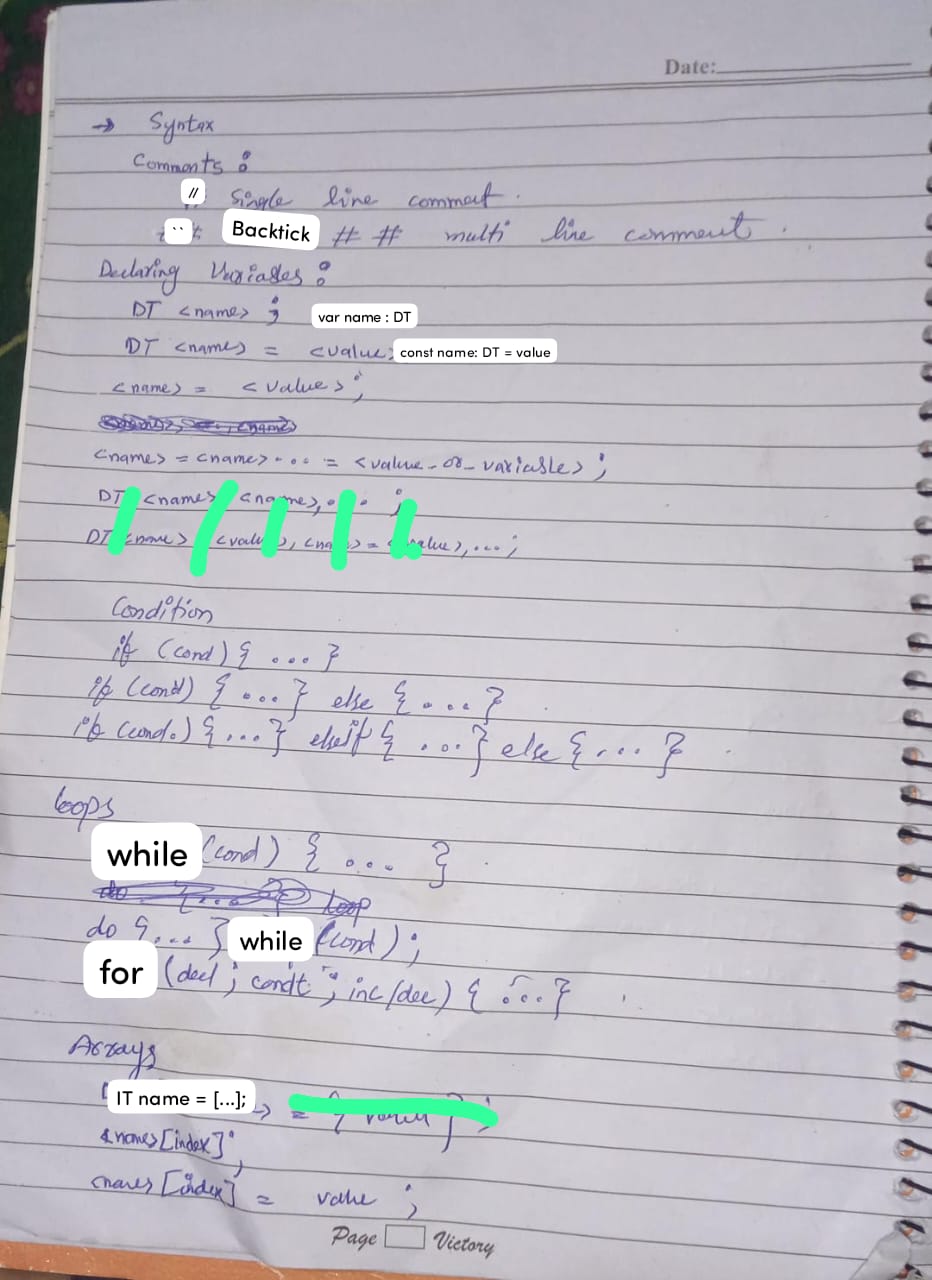 Date:
→ Syntax
Comments :
// single line comment .
`` Backtick # # multi line comment .
Declaring Variables :
DT <name> ; var name : DT
DT <name> = <value> const name: DT = value
<name> = <value> ;
<name> = <name> ... = <value-or-variable> ;
DT <name> <name>, ... ;
DT <name> <value>, <name> = <value>, ... ;
Condition
if (cond) { ... }
if (cond) { ... } else { ... }
if (cond.) { ... } elseif { ... } else { ... }
loops
while (cond) { ... }
do { ... } while (cond) ;
for (decl ; condt ; inc/dec) { ... }
Arrays
IT name = [...];
<name>[index] ;
<name> [index] = value ;
Page Victory